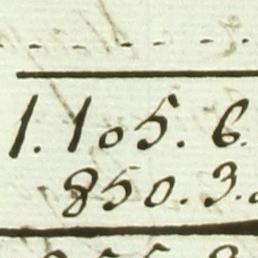 1.105.6.
850.3.